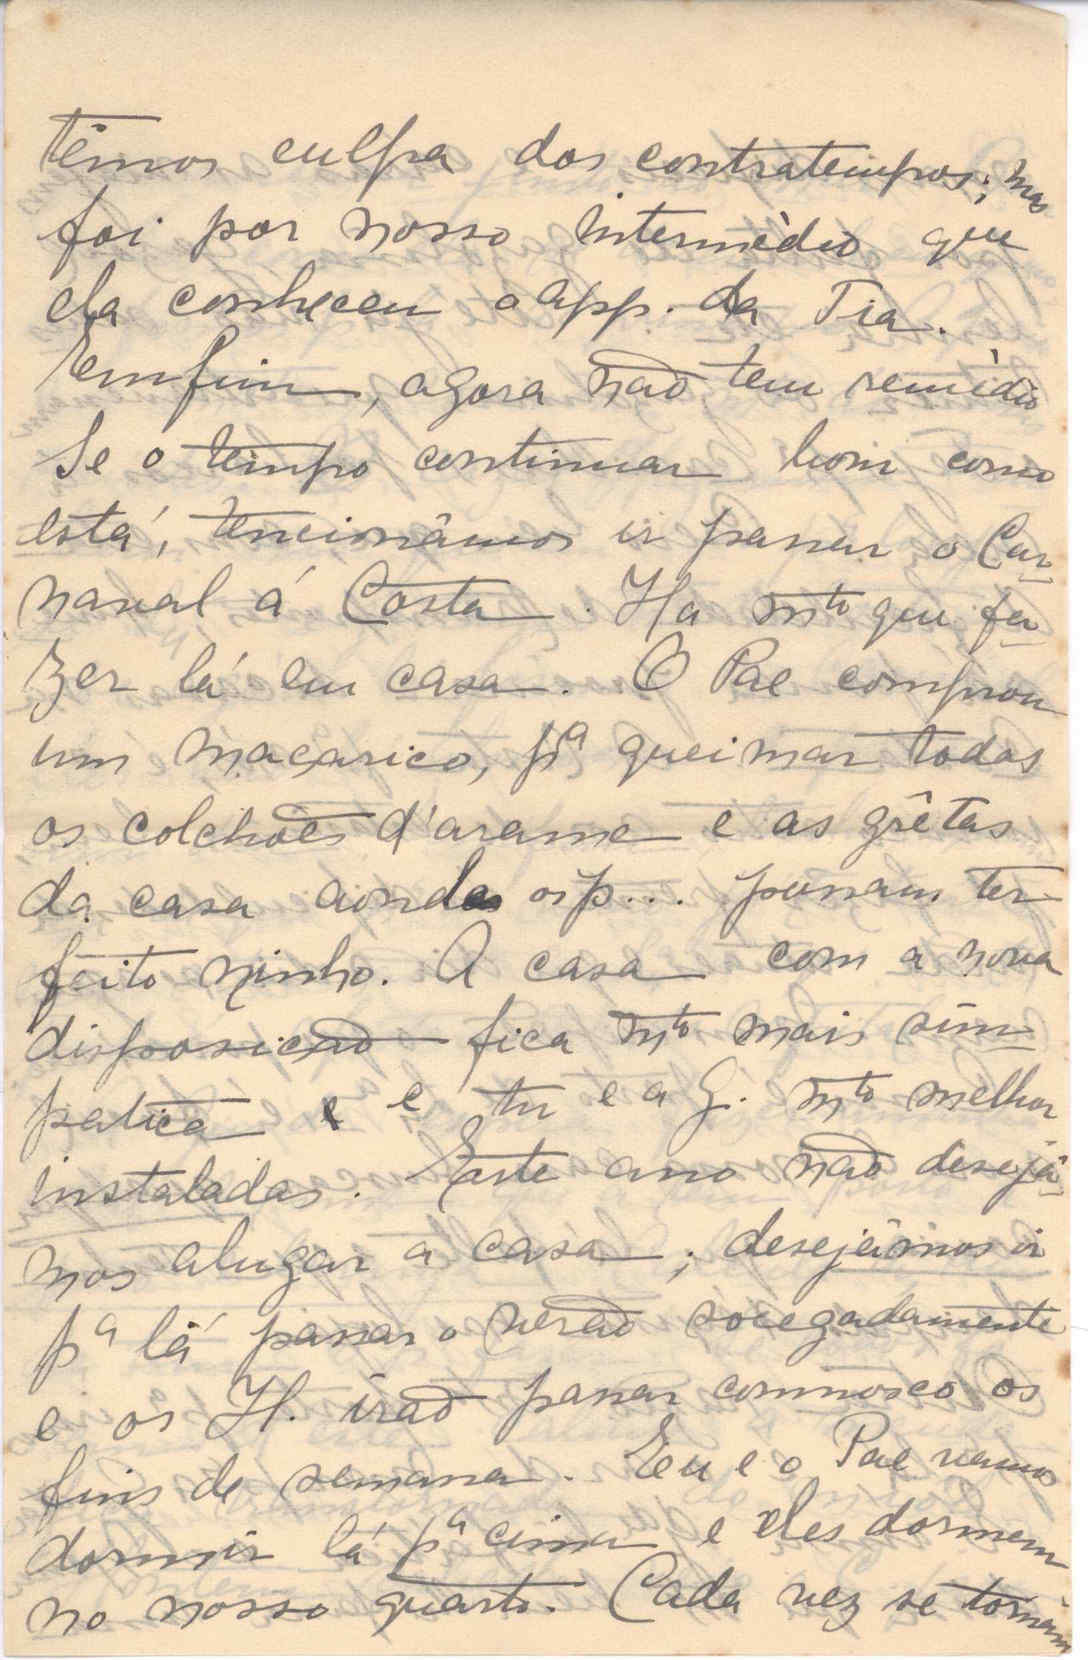 têmos culpa dos contratempos; mas
foi por nosso intermèdio que
ela conheceu o app. da Tia.
Emfim, agora não tem remèdio
Se o tempo continuar bom como
está, tencionâmos ir passar o Car-
naval á Costa. Ha mto que fa-
zer lá em casa. O Pae comprou
um maçarico, pa queimar todos
os colchões d'arame e as grêtas
da casa aondes os p... possam ter
feito ninho. A casa com a nova
disposição fica mto mais sim-
patica e tu e a G. mto melhor
instaladas. Este ano não desejâ-
mos alugar a casa; desejâmos ir
pa lá passar o verão socegadamente
e os H. irão passar comnosco os
fins de semana. Eu e o Pae vamos
dormir lá pa cima e eles dormem
no nosso quarto. Cada vez se tornam